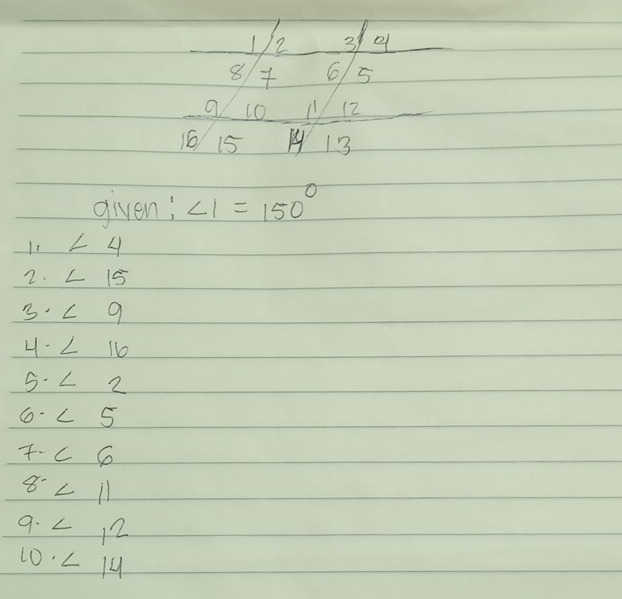 1 2 3 4
8 7 6 5
9 10 11 12
16 15 14 13
given: ∠1 = 150°
1. ∠ 4
2. ∠ 15
3. ∠ 9
4. ∠ 16
5. ∠ 2
6. ∠ 5
7. ∠ 6
8. ∠ 11
9. ∠ 12
10. ∠ 14